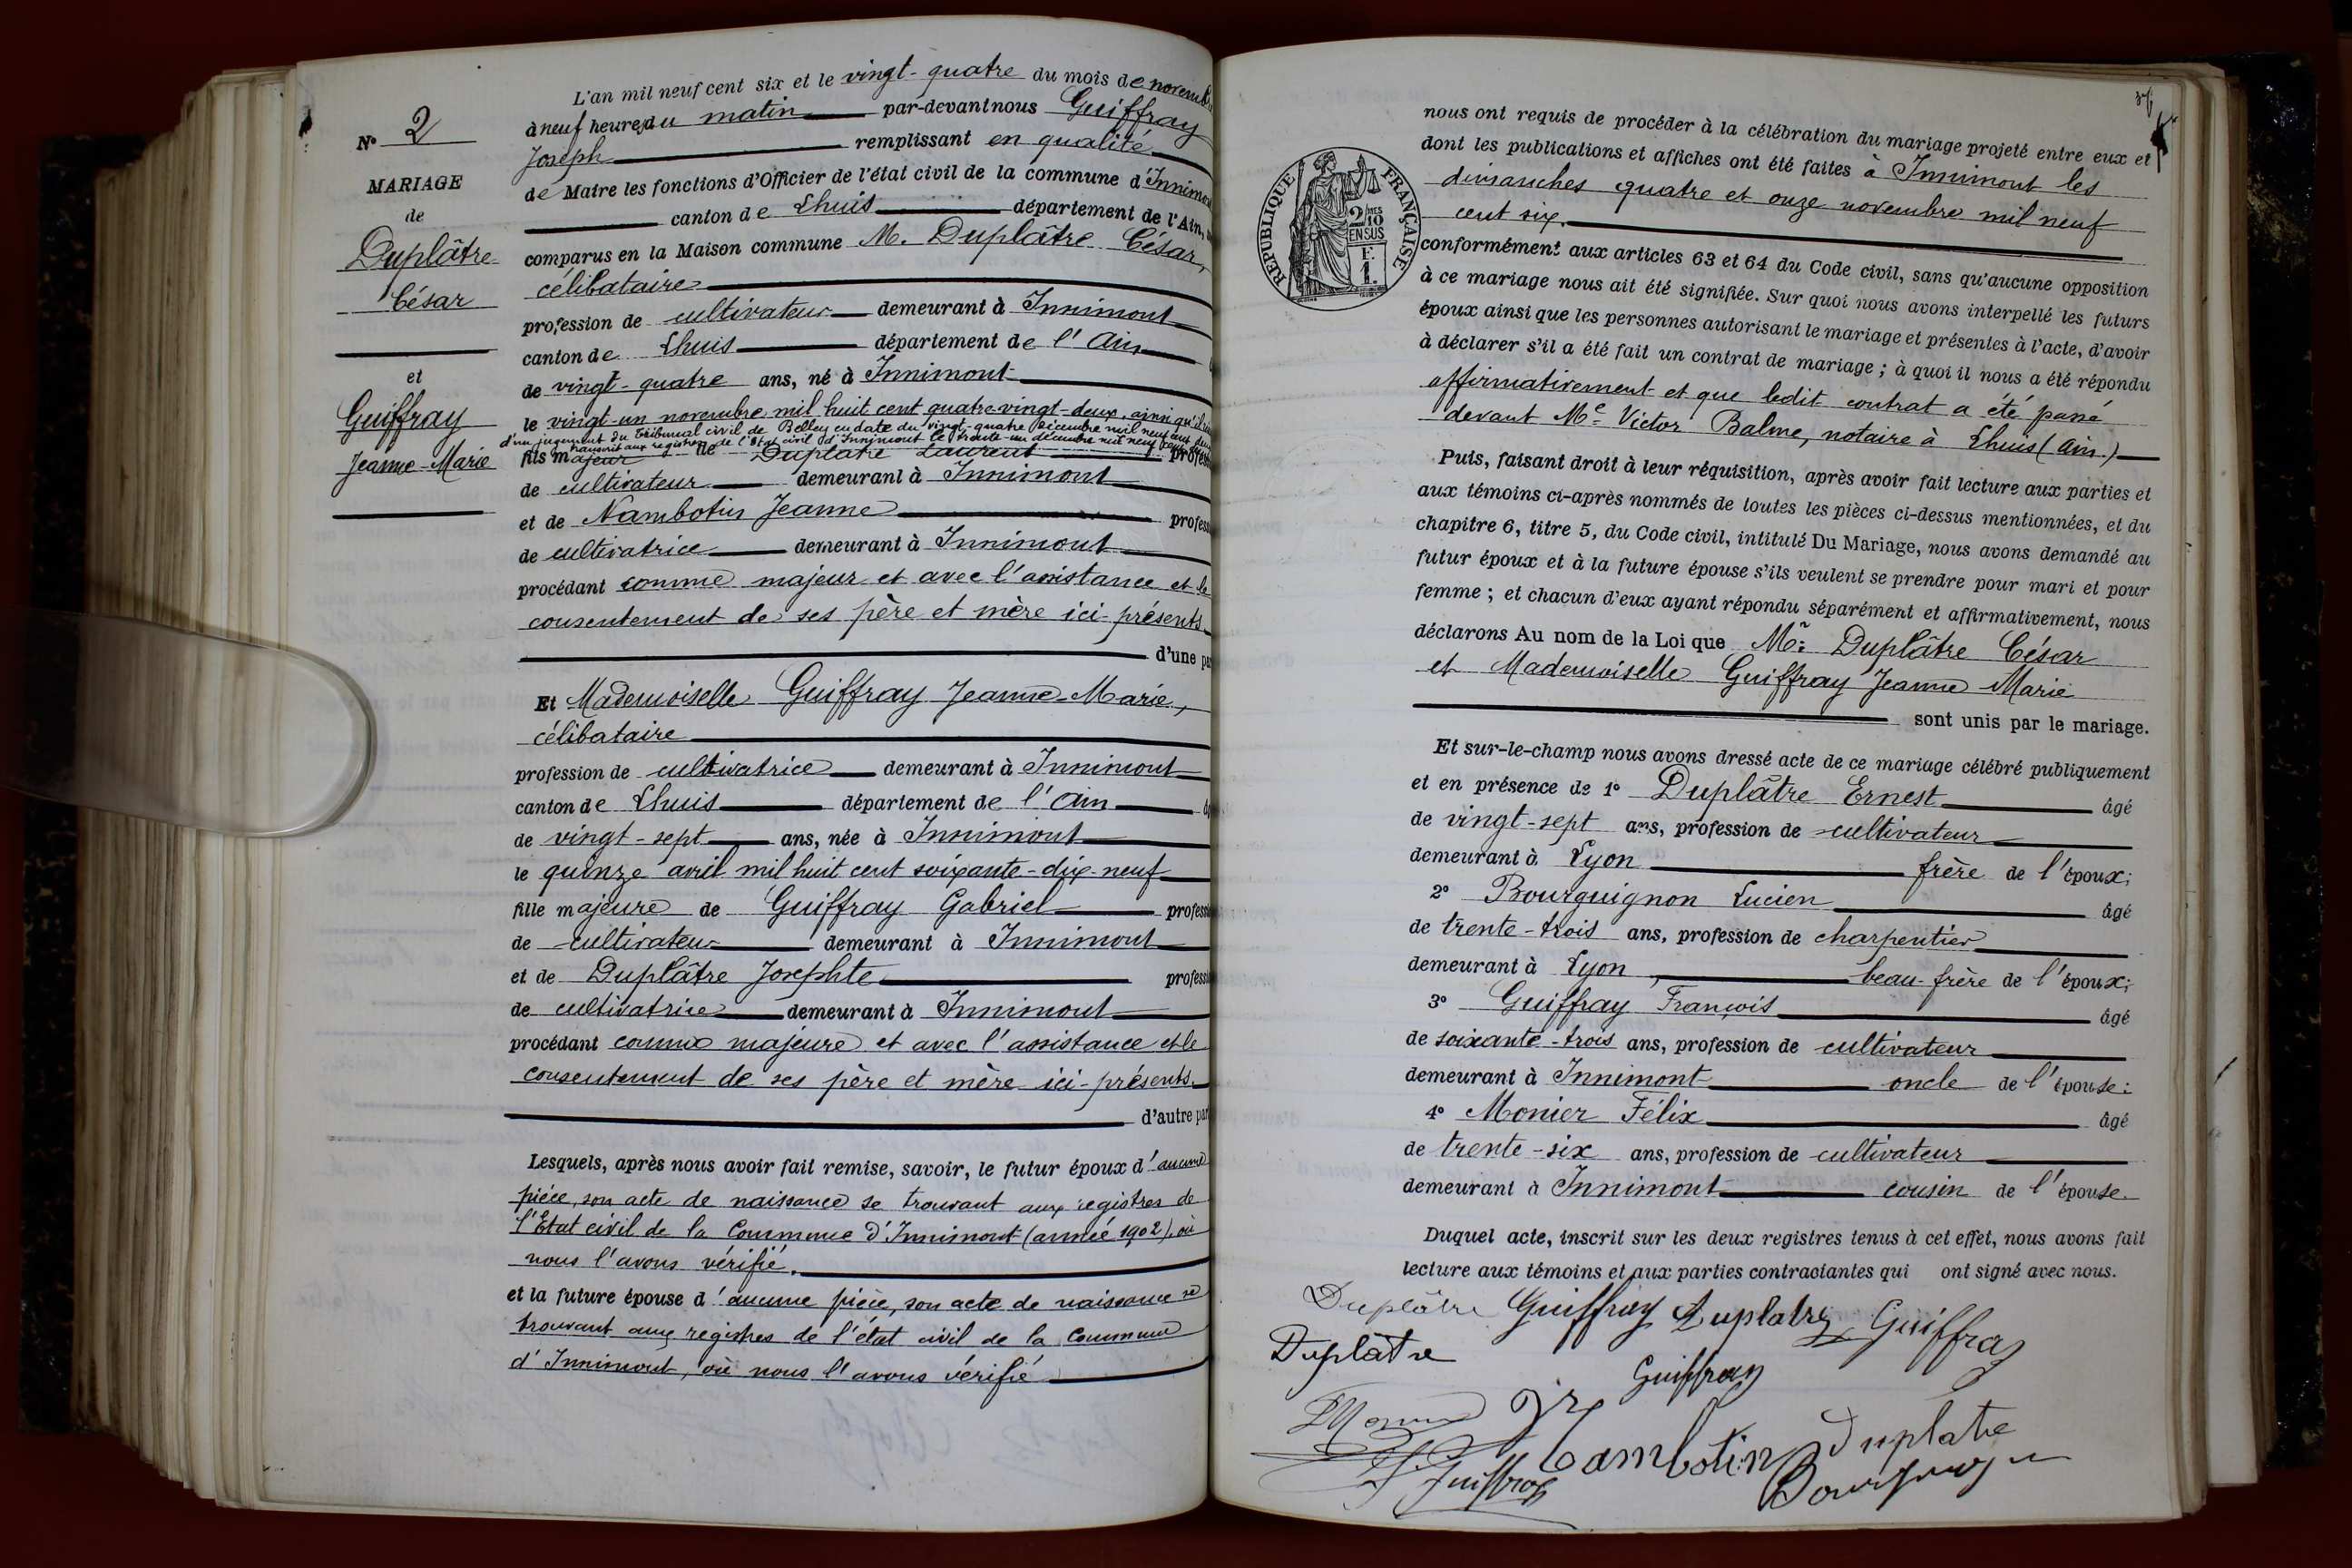 N° 2
MARIAGE
de
Duplâtre
César
et
Guiffray
Jeanne-Marie
L'an mil neuf cent six et le vingt-quatre du mois de novembre
à neuf heures du matin par-devant nous Guiffray
Joseph remplissant en qualité
de Maire les fonctions d'Officier de l'état civil de la commune d'Innimont
canton de Lhuis département de l'Ain,
comparus en la Maison commune M. Duplâtre César,
célibataire
profession de cultivateur demeurant à Innimont
canton de Lhuis département de l'Ain
de vingt-quatre ans, né à Innimont
le vingt-un novembre mil huit cent quatre-vingt-deux, ainsi qu'il
d'un jugement du Tribunal civil de Belley en date du vingt-quatre décembre mil neuf cent deux
transcrit aux registres de l'Etat civil d'Innimont le trente-un décembre mil neuf cent deux
fils majeur de Duplatre Laurent profess
de cultivateur demeurant à Innimont
et de Nambotin Jeanne profess
de cultivatrice demeurant à Innimont
procédant comme majeur et avec l'assistance et le
consentement de ses père et mère ici-présents
d'une par
Et Mademoiselle Guiffray Jeanne-Marie,
célibataire
profession de cultivatrice demeurant à Innimont
canton de Lhuis département de l'Ain
de vingt-sept ans, née à Innimont
le quinze avril mil huit cent soixante-dix-neuf
fille majeure de Guiffray Gabriel profess
de cultivateur demeurant à Innimont
et de Duplâtre Josephte profess
de cultivatrice demeurant à Innimont
procédant comme majeure et avec l'assistance et le
consentement de ses père et mère ici-présents.
d'autre par
Lesquels, après nous avoir fait remise, savoir, le futur époux d'aucune
pièce, son acte de naissance se trouvant aux registres de
l'Etat civil de la Commune d'Innimont (année 1902), où
nous l'avons vérifié.
et la future épouse d'aucune pièce, son acte de naissance se
trouvant aux registres de l'état civil de la Commune
d'Innimont, où nous l'avons vérifié
RÉPUBLIQUE FRANÇAISE
2/10 MES
EN SUS
F.
1.
nous ont requis de procéder à la célébration du mariage projeté entre eux et
dont les publications et affiches ont été faites à Innimont les
dimanches quatre et onze novembre mil neuf
cent six.
conformément aux articles 63 et 64 du Code civil, sans qu'aucune opposition
à ce mariage nous ait été signifiée. Sur quoi nous avons interpellé les futurs
époux ainsi que les personnes autorisant le mariage et présentes à l'acte, d'avoir
à déclarer s'il a été fait un contrat de mariage ; à quoi il nous a été répondu
affirmativement et que ledit contrat a été passé
devant Me Victor Balme, notaire à Lhuis (Ain)
Puis, faisant droit à leur réquisition, après avoir fait lecture aux parties et
aux témoins ci-après nommés de toutes les pièces ci-dessus mentionnées, et du
chapitre 6, titre 5, du Code civil, intitulé Du Mariage, nous avons demandé au
futur époux et à la future épouse s'ils veulent se prendre pour mari et pour
femme ; et chacun d'eux ayant répondu séparément et affirmativement, nous
déclarons Au nom de la Loi que Mr. Duplâtre César
et Mademoiselle Guiffray Jeanne Marie
sont unis par le mariage.
Et sur-le-champ nous avons dressé acte de ce mariage célébré publiquement
et en présence de 1° Duplâtre Ernest âgé
de vingt-sept ans, profession de cultivateur
demeurant à Lyon frère de l'époux;
2° Bourguignon Lucien âgé
de trente-trois ans, profession de charpentier
demeurant à Lyon, beau-frère de l'époux;
3° Guiffray François âgé
de soixante-trois ans, profession de cultivateur
demeurant à Innimont oncle de l'épouse:
4° Monier Félix âgé
de trente-six ans, profession de cultivateur
demeurant à Innimont cousin de l'épouse.
Duquel acte, inscrit sur les deux registres tenus à cet effet, nous avons fait
lecture aux témoins et aux parties contractantes qui ont signé avec nous.
Duplâtre Guiffray Duplatre Guiffray
Duplâtre Guiffray
Monier
Nambotin Duplatre
F. Guiffray Bourguignon